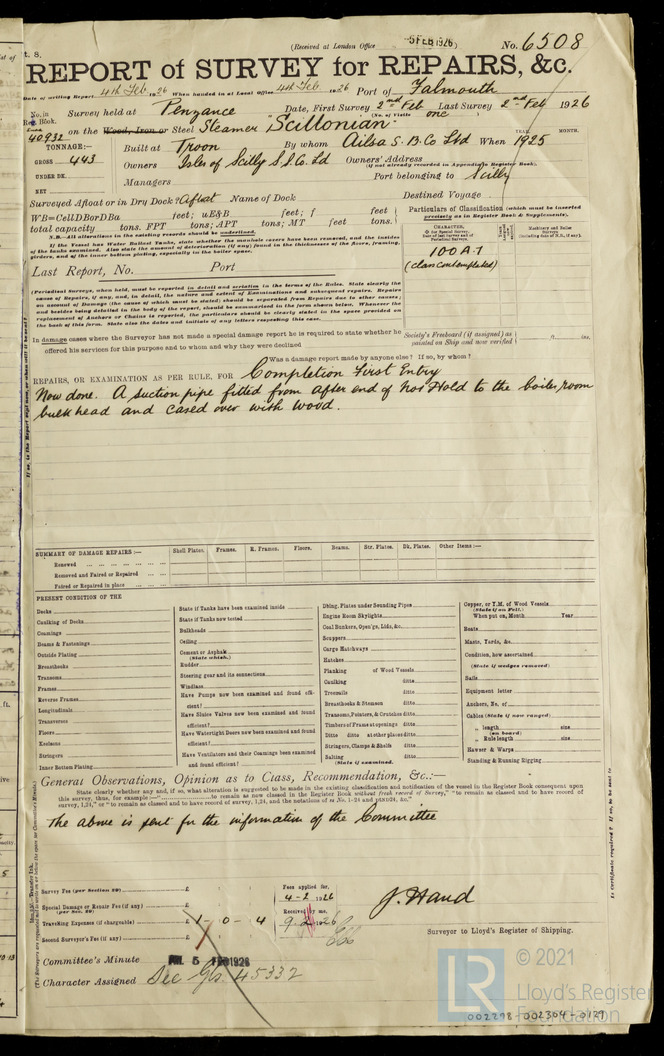 (Received at London Office 5 FEB 1926)
No. 6508
t. 8.
REPORT of SURVEY for REPAIRS, &c.
Date of writing Report 4th Feb 1926 When handed in at Local Office 4th Feb 1926 Port of Falmouth
No. in Reg. Book. Survey held at Penzance Date, First Survey 2nd Feb Last Survey 2nd Feb 1926
(No. of Visits one )
40932 on the Wood, Iron or Steel Steamer "Scillonian"
TONNAGE:— Built at Troon By whom Ailsa S. B. Co Ltd When 1925
YEAR. MONTH.
GROSS 443 Owners Isles of Scilly S. S. Co. Ld Owners' Address
(if not already recorded in Appendix to Register Book).
UNDER DK. Managers Port belonging to Scilly
NET
Surveyed Afloat or in Dry Dock? Afloat Name of Dock Destined Voyage
WB=CellDBorDBa feet; uE&B feet; f feet
total capacity tons. FPT tons; APT tons; MT feet tons.
N.B.—All alterations in the existing records should be underlined.
If the Vessel has Water Ballast Tanks, state whether the manhole covers have been removed, and the insides
of the tanks examined. Also state the amount of deterioration (if any) found in the thicknesses of the floors, framing,
girders, and of the inner bottom plating, especially in the boiler space.
Particulars of Classification (which must be inserted
precisely as in Register Book & Supplements).
CHARACTER.
Machinery and Boiler Surveys
100 A.1
(class contemplated)
Last Report, No. Port
(Periodical Surveys, when held, must be reported in detail and seriatim in the terms of the Rules. State clearly the
cause of Repairs, if any, and, in detail, the nature and extent of Examinations and consequent repairs. Repairs
on account of Damage (the cause of which must be stated) should be separated from Repairs due to other causes;
and besides being detailed in the body of the report, should be summarised in the form shown below. Whenever the
replacement of Anchors or Chains is reported, the particulars should be clearly stated in the space provided on
the back of this form. State also the dates and initials of any letters respecting this case.
In damage cases where the Surveyor has not made a special damage report he is required to state whether he
offered his services for this purpose and to whom and why they were declined
Society's Freeboard (if assigned) as
painted on Ship and now verified
Was a damage report made by anyone else? If so, by whom?
REPAIRS, OR EXAMINATION AS PER RULE, FOR Completion First Entry
Now done. A suction pipe fitted from after end of No 1 Hold to the boiler room
bulkhead and cased over with wood.
SUMMARY OF DAMAGE REPAIRS:— Shell Plates. Frames. R. Frames. Floors. Beams. Str. Plates. Dk. Plates. Other Items:—
Renewed
Removed and Faired or Repaired
Faired or Repaired in place
PRESENT CONDITION OF THE
Decks
Caulking of Decks
Coamings
Beams & Fastenings
Outside Plating
Breasthooks
Transoms
Frames
Reverse Frames
Longitudinals
Transverses
Floors
Keelsons
Stringers
Inner Bottom Plating
State if Tanks have been examined inside
State if Tanks now tested
Bulkheads
Ceiling
Cement or Asphalt
(State which.)
Rudder
Steering gear and its connections
Windlass
Have Pumps now been examined and found efficient?
Have Sluice Valves now been examined and found efficient?
Have Watertight Doors now been examined and found efficient?
Have Ventilators and their Coamings been examined and found efficient?
Dblng. Plates under Sounding Pipes
Engine Room Skylights
Coal Bunkers, Open'gs, Lids, &c.
Scuppers
Cargo Hatchways
Hatches
Planking of Wood Vessels
Caulking ditto
Treenails ditto
Breasthooks & Stemson ditto
Transoms, Pointers, & Crutches ditto
Timbers of Frame at openings ditto
Ditto ditto at other places ditto
Stringers, Clamps & Shelfs ditto
Salting ditto
(State if examined.)
Copper, or Y.M. of Wood Vessels
(State if on Felt.)
When put on, Month Year
Boats
Masts, Yards, &c.
Condition, how ascertained
(State if wedges removed)
Sails
Equipment letter
Anchors, No. of
Cables (State if now ranged)
„ length size
(on board)
„ Rule length size
Hawser & Warps
Standing & Running Rigging
General Observations, Opinion as to Class, Recommendation, &c.:—
State clearly whether any, and if so, what alteration is suggested to be made in the existing classification and notification of the vessel in the Register Book consequent upon
this survey, thus, for example:—" to remain as now classed in the Register Book without fresh record of Survey," "to remain as classed and to have record of
survey, 1,24," or "to remain as classed and to have record of survey, 1,24, and the notations of ss No. 1-24 and ptND1/24, &c."
The above is sent for the information of the Committee
Survey Fee (per Section 29) £
Special Damage or Repair Fee (if any) £
(per Sec. 29)
Travelling Expenses (if chargeable) £ 1 - 0 - 4
Second Surveyor's Fee (if any) £
Fees applied for,
4-2 1926
Received by me,
9.2.1926
J. Hand
Surveyor to Lloyd's Register of Shipping.
Committee's Minute 5 FEB 1926
Character Assigned See Gls. 45332
© 2021
LR
Lloyd's Register
Foundation
002298-002304-0127